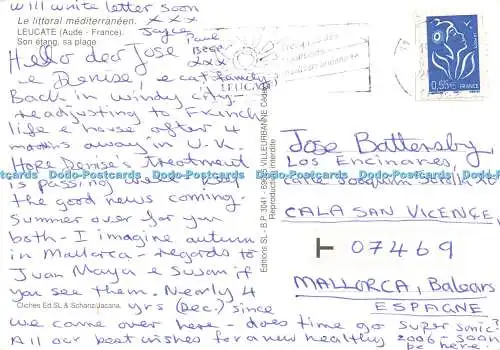 will write letter soon
x x x
Joyce
Paul
Bege
xxx
Le littoral méditerranéen.
LEUCATE (Aude - France).
Son étang, sa plage
Hello dear Jose
e Denise, e cat family
Back in windy city-
readjusting to French
life e house after 4
months away in U.K.
Hope Denise's treatment
is passing we keep
the good news coming-
summer over for you
both - I imagine autumn
in Mallorca - regards to
Juan Maya e Susan if
you see them. Nearly 4
yrs (Dec.) since
we came over here - does time go super sonic?
All our best wishes for a new healthy 2006 - soon
be here!
Clichés Ed.SL & Schanz/Jacana.
Editions SL - B.P. 1041 - VILLEURBANNE Cedex
Reproduction interdite
LEUCATE
0,55€ FRANCE
Jose Battersby,
Los Encinares,
CALA SAN VICENCE,
07469
MALLORCA, Balears
ESPAGNE
Dodo-Postcards Dodo-Postcards Dodo-Postcards